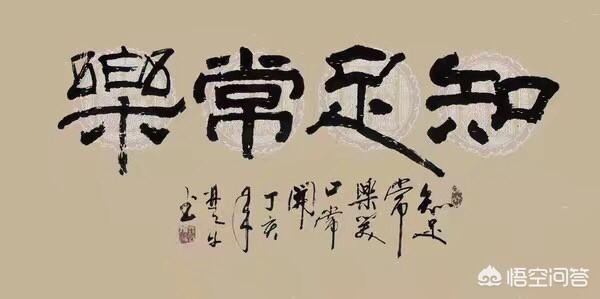 知足常樂
知足
常
樂笑
口常
開
丁亥
年
悟空问答